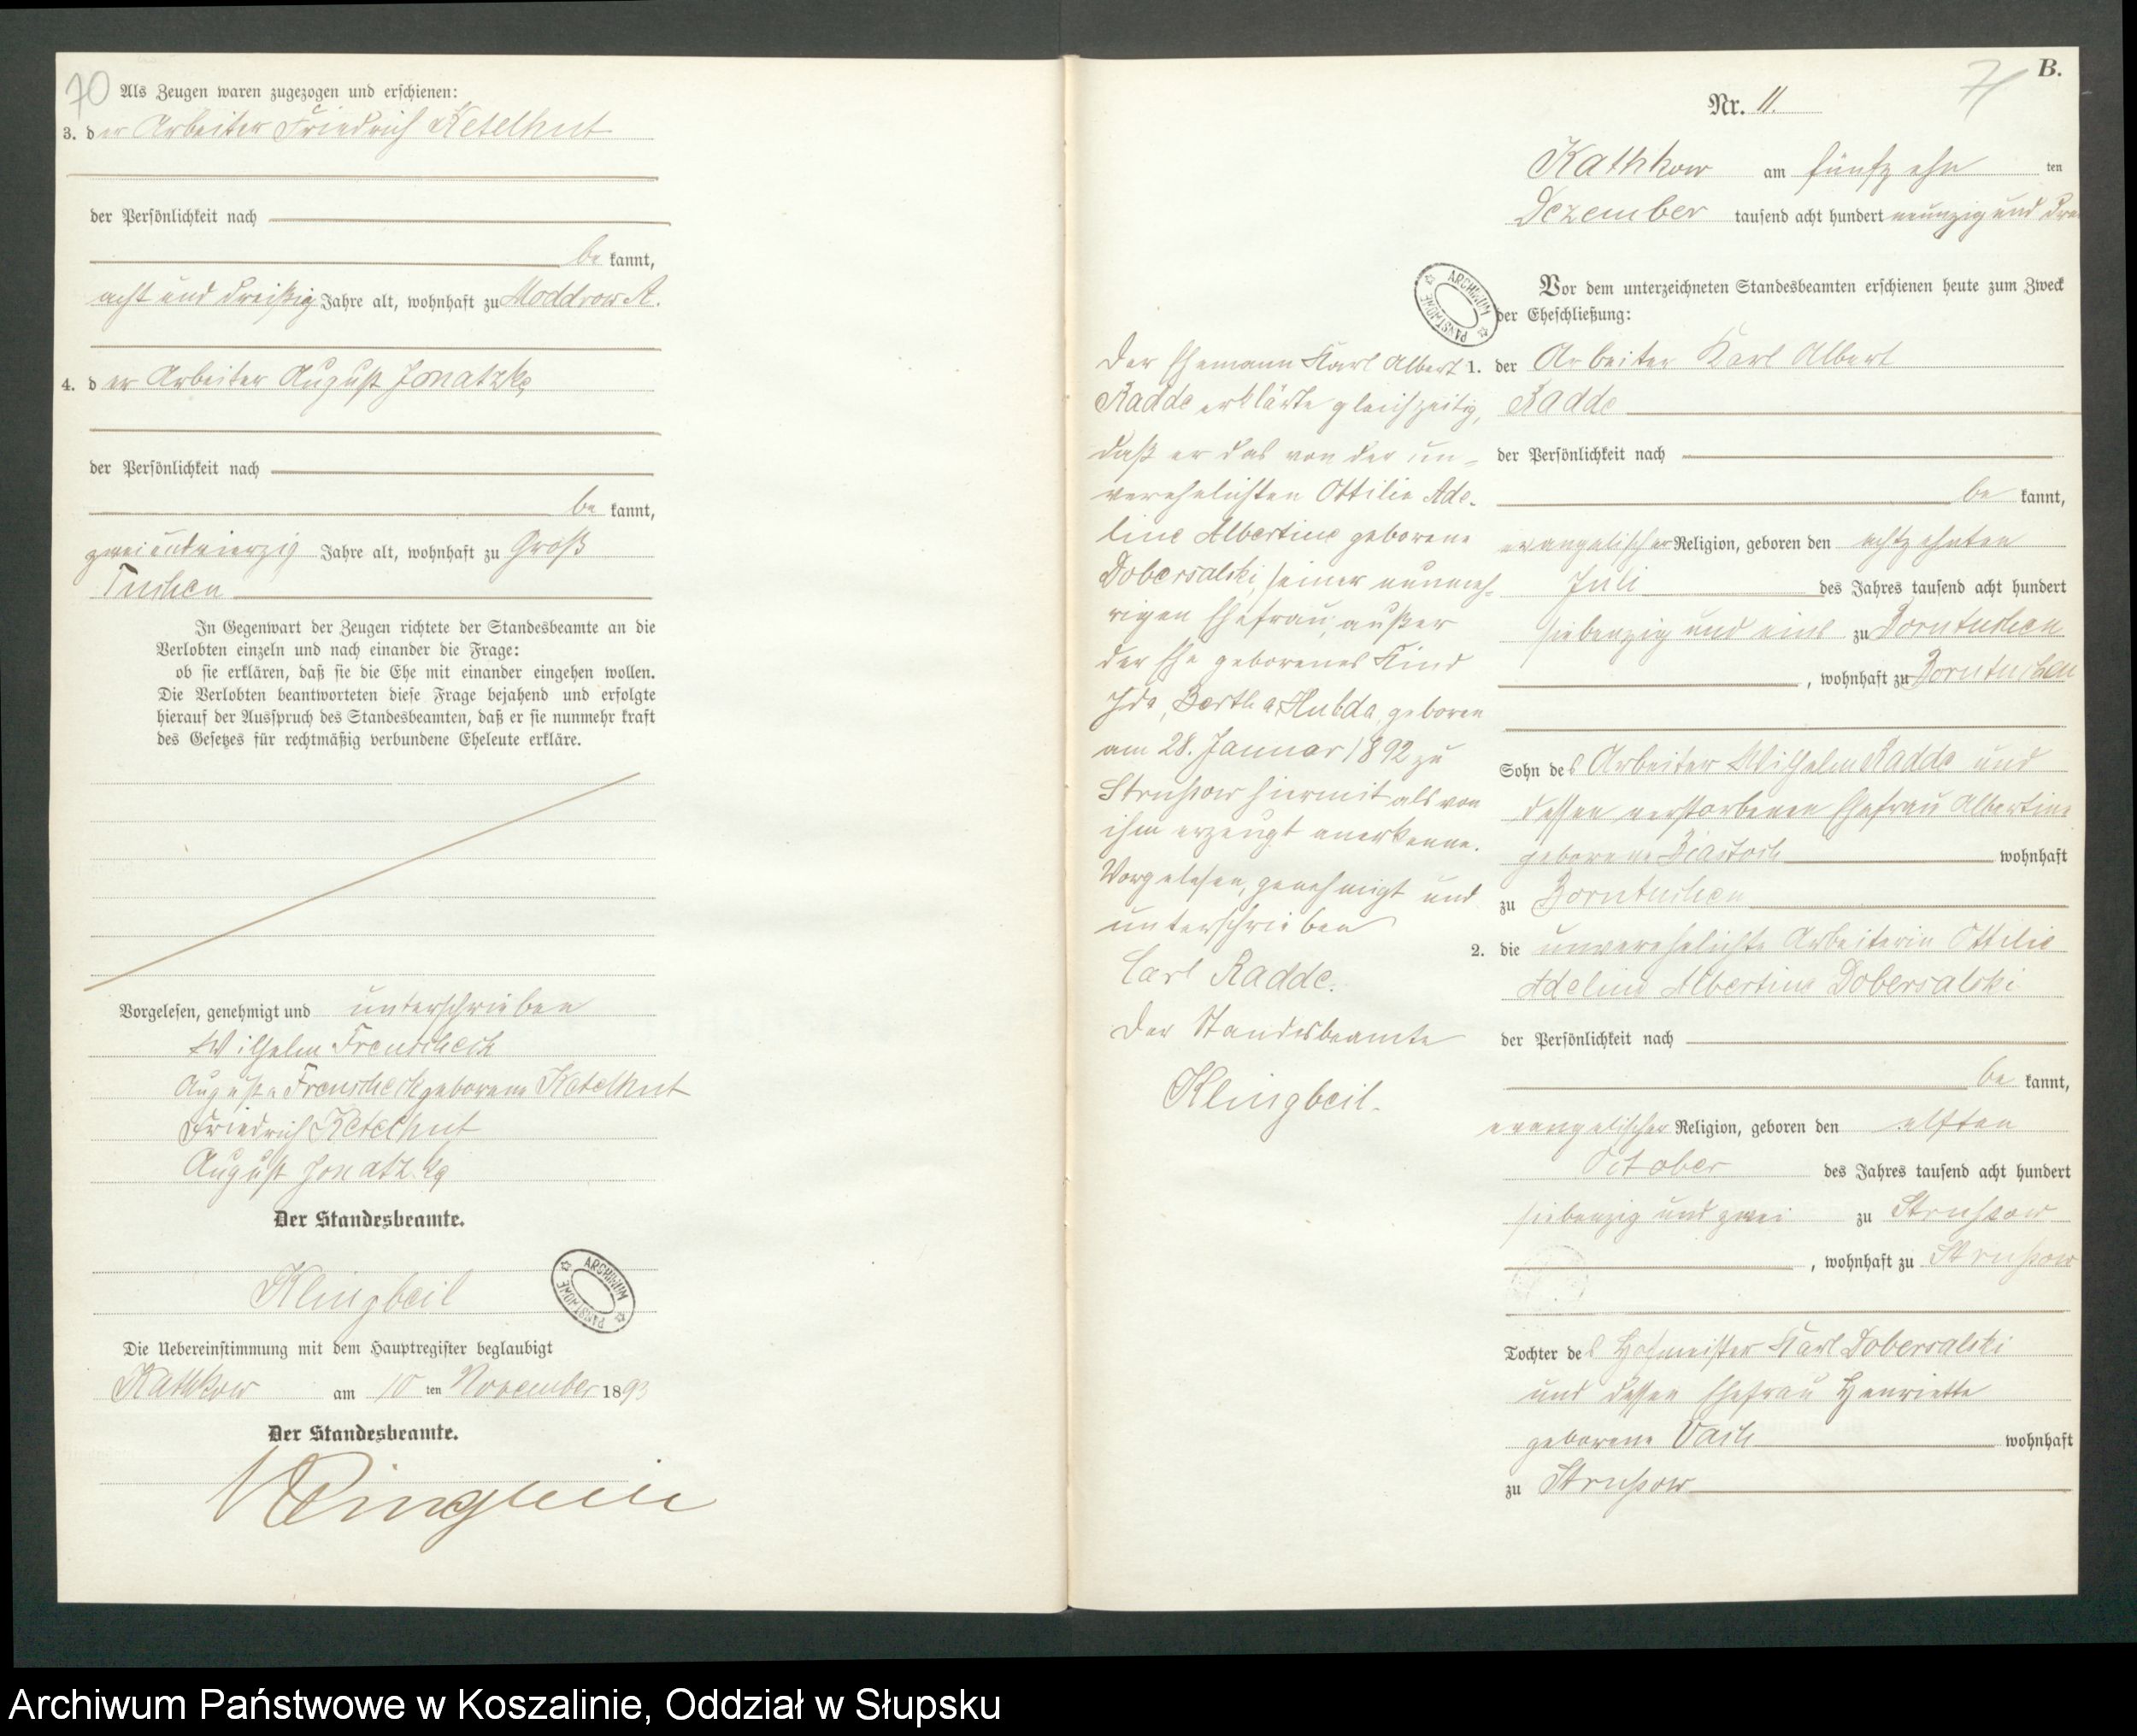 70
Als Zeugen waren zugezogen und erschienen:
3. der Arbeiter Friedrich Ketelhut
der Persönlichkeit nach
be kannt,
acht und dreißig Jahre alt, wohnhaft zu Moddrow A.
4. der Arbeiter August Jonatzke
der Persönlichkeit nach
be kannt,
zweiundvierzig Jahre alt, wohnhaft zu Groß
Tuchen
In Gegenwart der Zeugen richtete der Standesbeamte an die
Verlobten einzeln und nach einander die Frage:
ob sie erklären, daß sie die Ehe mit einander eingehen wollen.
Die Verlobten beantworteten diese Frage bejahend und erfolgte
hierauf der Ausspruch des Standesbeamten, daß er sie nunmehr kraft
des Gesetzes für rechtmäßig verbundene Eheleute erkläre.
Vorgelesen, genehmigt und unterschrieben
Wilhelm
Auguste geborene Ketelhut
Friedrich Ketelhut
August Jonatzke
Der Standesbeamte.
Klingbeil
ARCHIWUM PAŃSTWOWE
Die Uebereinstimmung mit dem Hauptregister beglaubigt
Kathkow am 10 ten November 1893
Der Standesbeamte.
Klingbeil
71
B.
Nr. 11.
Kathkow am fünfzehn ten
Dezember tausend acht hundert neunzig und drei
ARCHIWUM PAŃSTWOWE
Vor dem unterzeichneten Standesbeamten erschienen heute zum Zweck
der Eheschließung:
1. der Arbeiter Karl Albert
Radde
der Persönlichkeit nach
be kannt,
evangelischer Religion, geboren den achtzehnten
Juli des Jahres tausend acht hundert
siebenzig und eins zu Borntuchen
, wohnhaft zu Borntuchen
Sohn des Arbeiter Wilhelm Radde und
dessen verstorbenen Ehefrau Albertine
geborene wohnhaft
zu Borntuchen
2. die unverehelichte Arbeiterin Ottilie
Adeline Albertine Dobersalski
der Persönlichkeit nach
be kannt,
evangelischer Religion, geboren den elften
October des Jahres tausend acht hundert
siebenzig und zwei zu Strussow
, wohnhaft zu Strussow
Tochter des Hofmeister Karl Dobersalski
und dessen Ehefrau Henriette
geborene wohnhaft
zu Strussow
Der Ehemann Karl Albert
Radde erklärte gleichzeitig,
daß er das von der un-
verehelichten Ottilie Ade-
line Albertine geborene
Dobersalski, seiner nunmeh-
rigen Ehefrau, außer
der Ehe geborenes Kind
Ida, Bertha, Hulda, geboren
am 28. Januar 1892 zu
Strussow hiermit als von
ihm erzeugt anerkenne.
Vorgelesen, genehmigt und
unterschrieben
Carl Radde.
Der Standesbeamte
Klingbeil.
Archiwum Państwowe w Koszalinie, Oddział w Słupsku